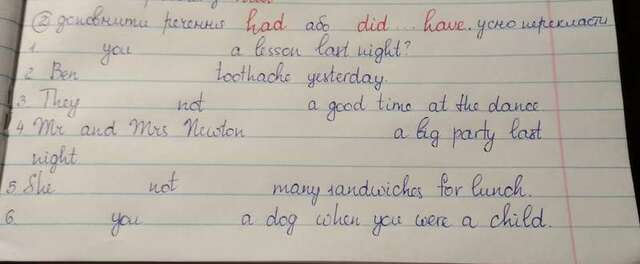 ② доповнити речення had або did ... have. усно перекласти
1. you a lesson last night?
2 Ben toothache yesterday.
3 They not a good time at the dance
4 Mr and Mrs Newton a big party last
night
5 She not many sandwiches for lunch.
6. you a dog when you were a child.